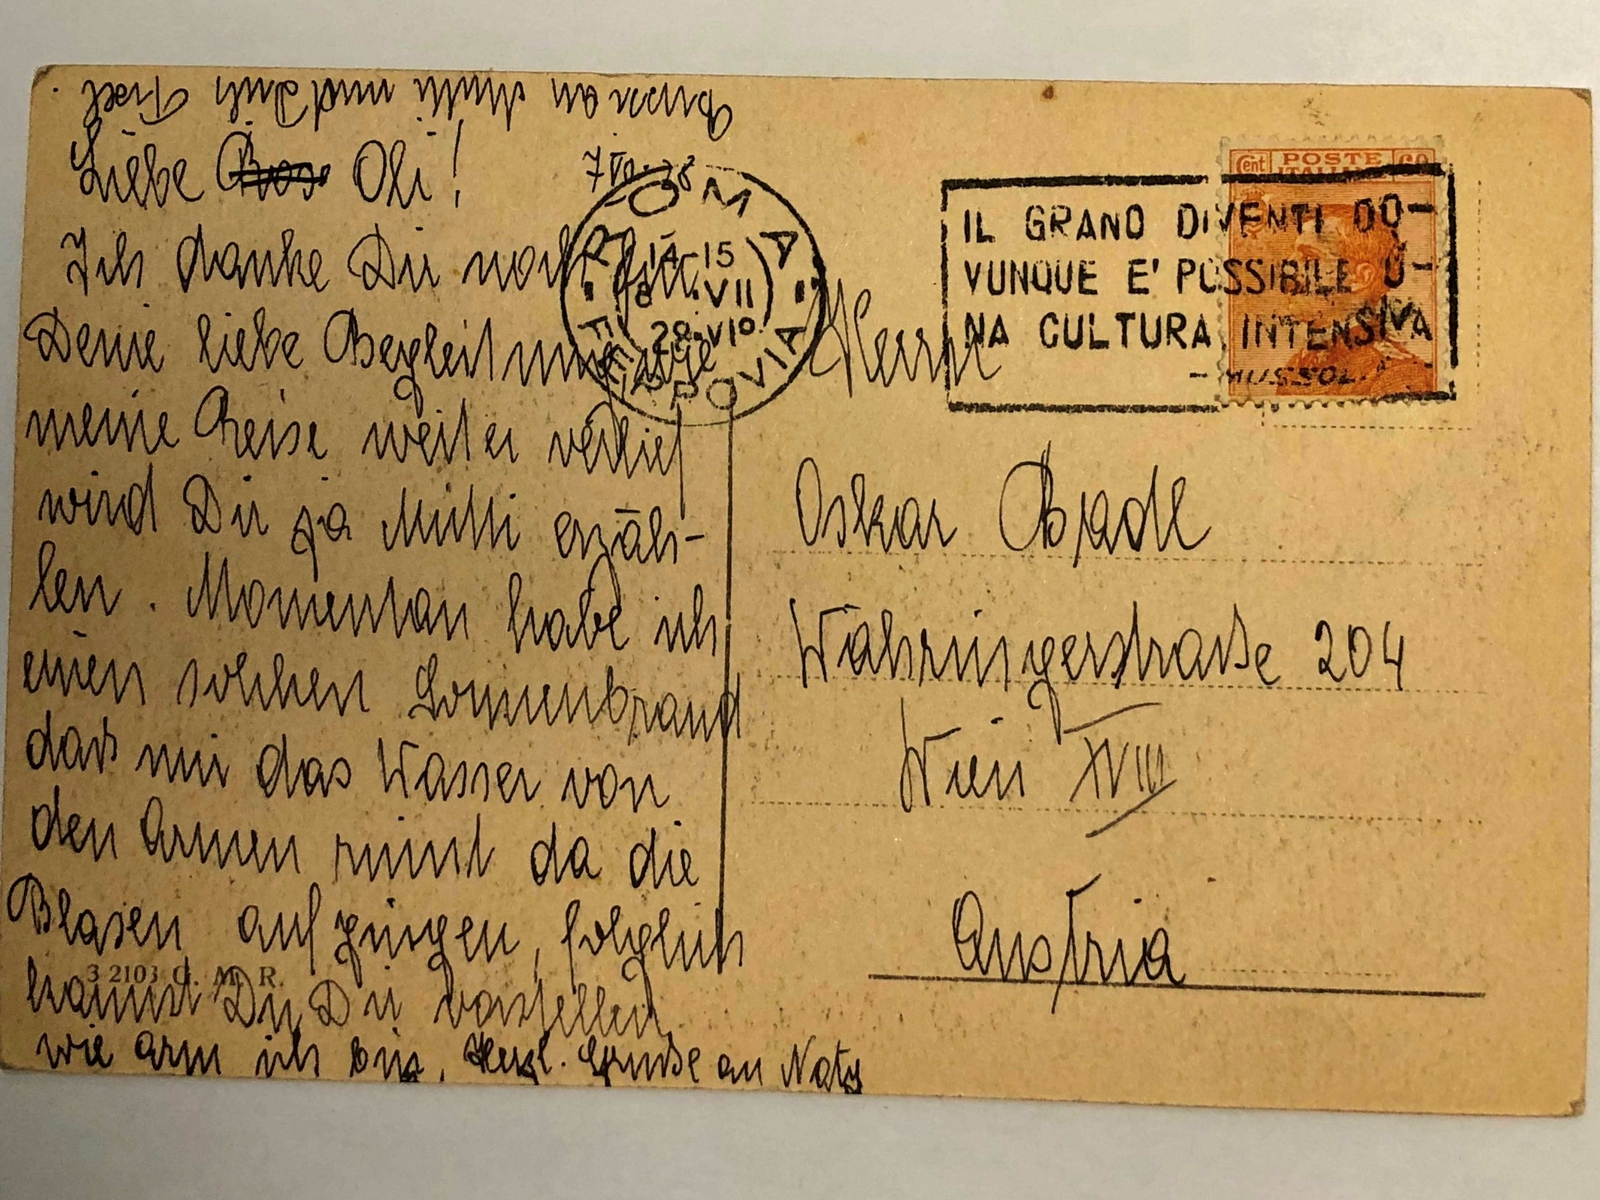 Bussi an Mutti und Dich Fisel.
Liebe Oli!
7 VII. 28
Ich danke Dir noch für
Deine liebe Begleitung wie
meine Reise weiter verlief
wird Dir ja Mutti erzäh-
len. Momentan habe ich
einen solchen Sonnenbrand
daß mir das Wasser von
den Armen rinnt da die
Blasen auf gingen, folglich
kannst Du Dir vorstellen
wie arm ich bin. Herzl. Grüße an Naty
3 2103 C. M. R.
ROMA
14-15
8 · VII
28-VI°
FERROVIA
IL GRANO DIVENTI DO-
VUNQUE E' POSSIBILE U-
NA CULTURA INTENSIVA
- MUSSOL.
Cent POSTE 60
ITALIANE
Herrn
Oskar
Währingerstraße 204
Wien XVIII
Austria